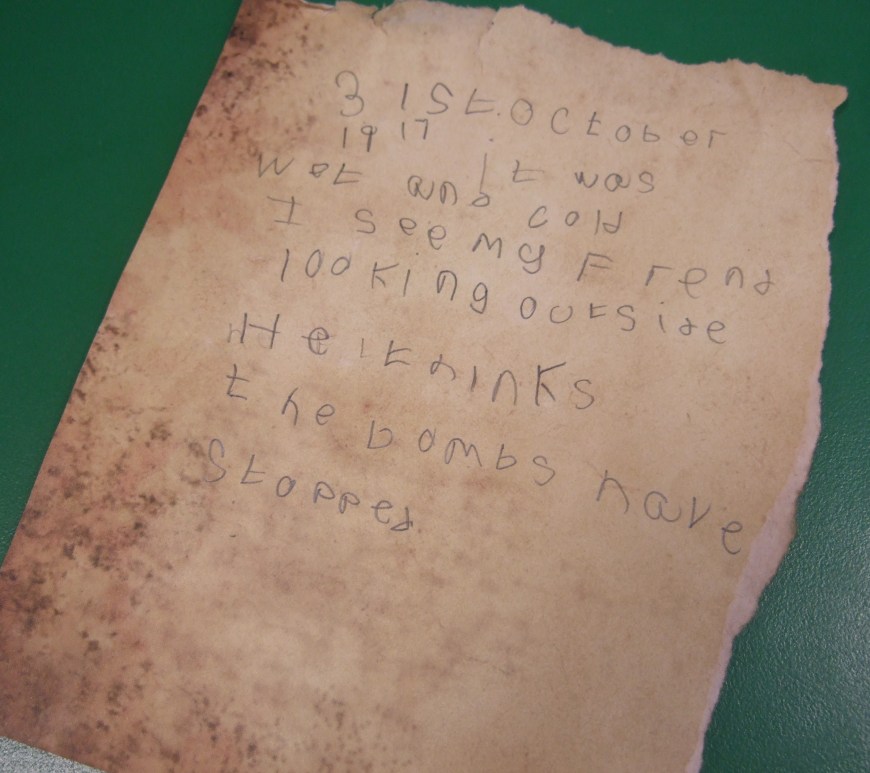 31st.October
1917. It was
wet and cold
I see my Frend
looking outside
He thinks
the bombs have
stopped.